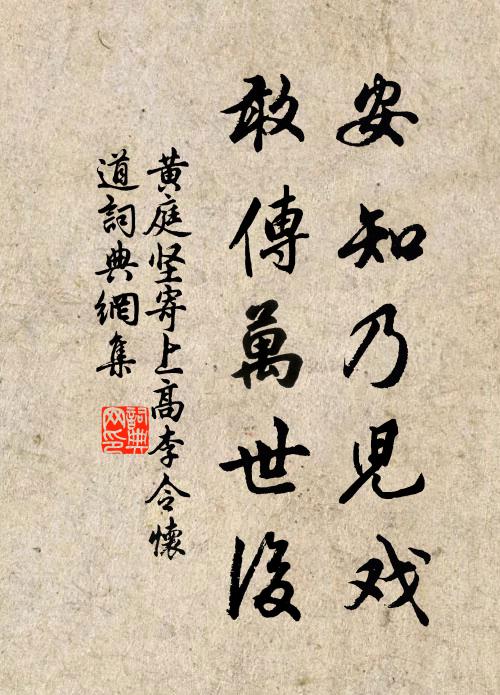 安知乃儿戏
敢傳萬世後
黄庭坚寄上高李令懷
道詞典網集
詞典
网印